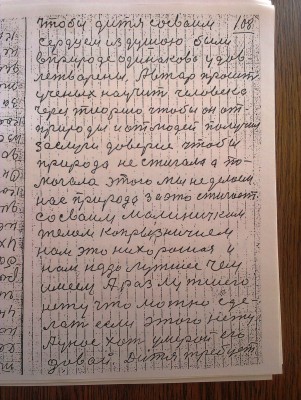 чтобы дитя со своим 108
сердцем из душою был
в природе одинаково удов
летворены. Автор просит
ученых научит человека
через теорию чтобы он от
природы и от людей получил
заслуги доверие чтобы
природа не стигала а по-
могала этого мы не делаем
нас природа за это стигает
со своим маленичким
телом
нам это нихорошая и
нам надо лутшее чем
имеем А раз лутшего
нету что можно сде-
лать если этого нету
А у нас хот умирай его
давай. Дитя требует